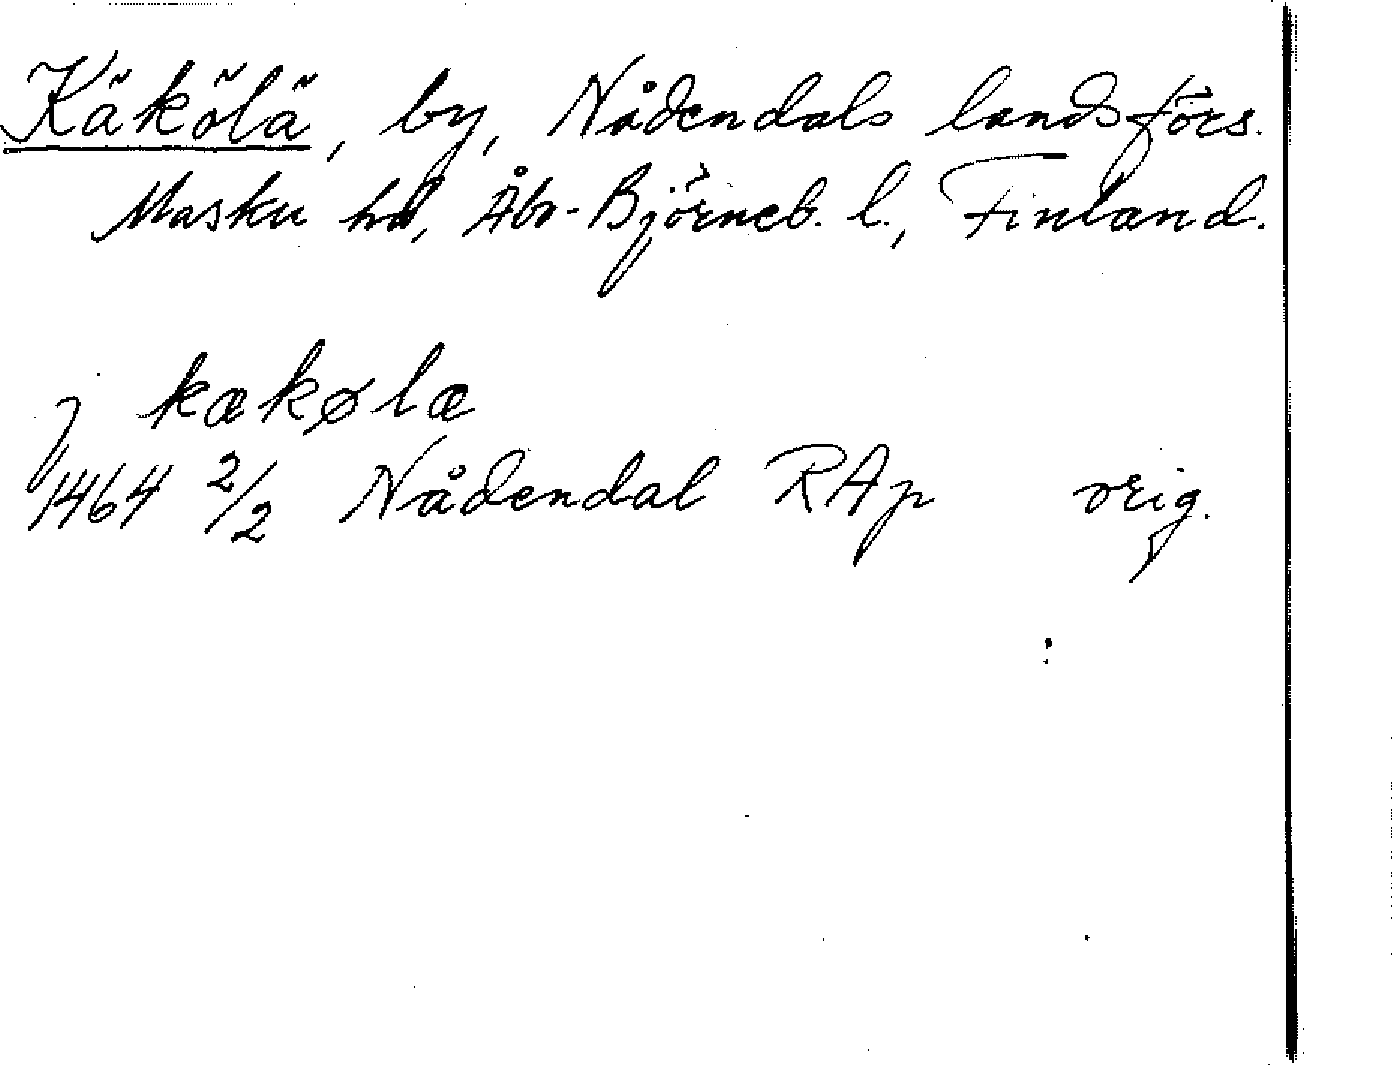 Käkölä, by, Nådendals landsförs.
Masku hd, Åbo-Björneb. l., Finland.
j kækølæ
1464 2/2 Nådendal RAp orig.